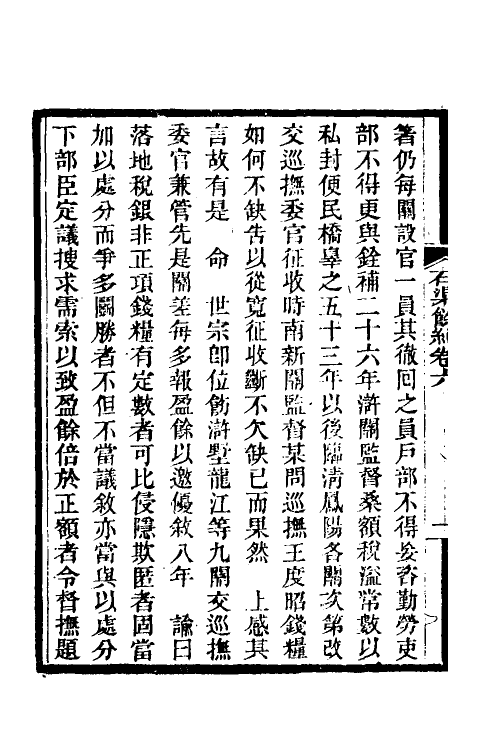 石渠餘紀卷六
一
著仍每關設官一員其徹囘之員戶部不得妄咨勤勞吏
部不得更與銓補二十六年滸關監督桑額稅溢常數以
私封便民橋辠之五十三年以後臨淸鳳陽各關次第改
交巡撫委官征收時南新關監督某問巡撫王度昭錢糧
如何不缺吿以從寬征收斷不欠缺已而果然　上感其
言故有是　命　世宗卽位飭滸墅龍江等九關交巡撫
委官兼管先是關差每多報盈餘以邀優敘八年　諭曰
落地稅銀非正項錢糧有定數者可比侵隱欺匿者固當
加以處分而爭多鬭勝者不但不當議敘亦當與以處分
下部臣定議搜求需索以致盈餘倍於正額者令督撫題